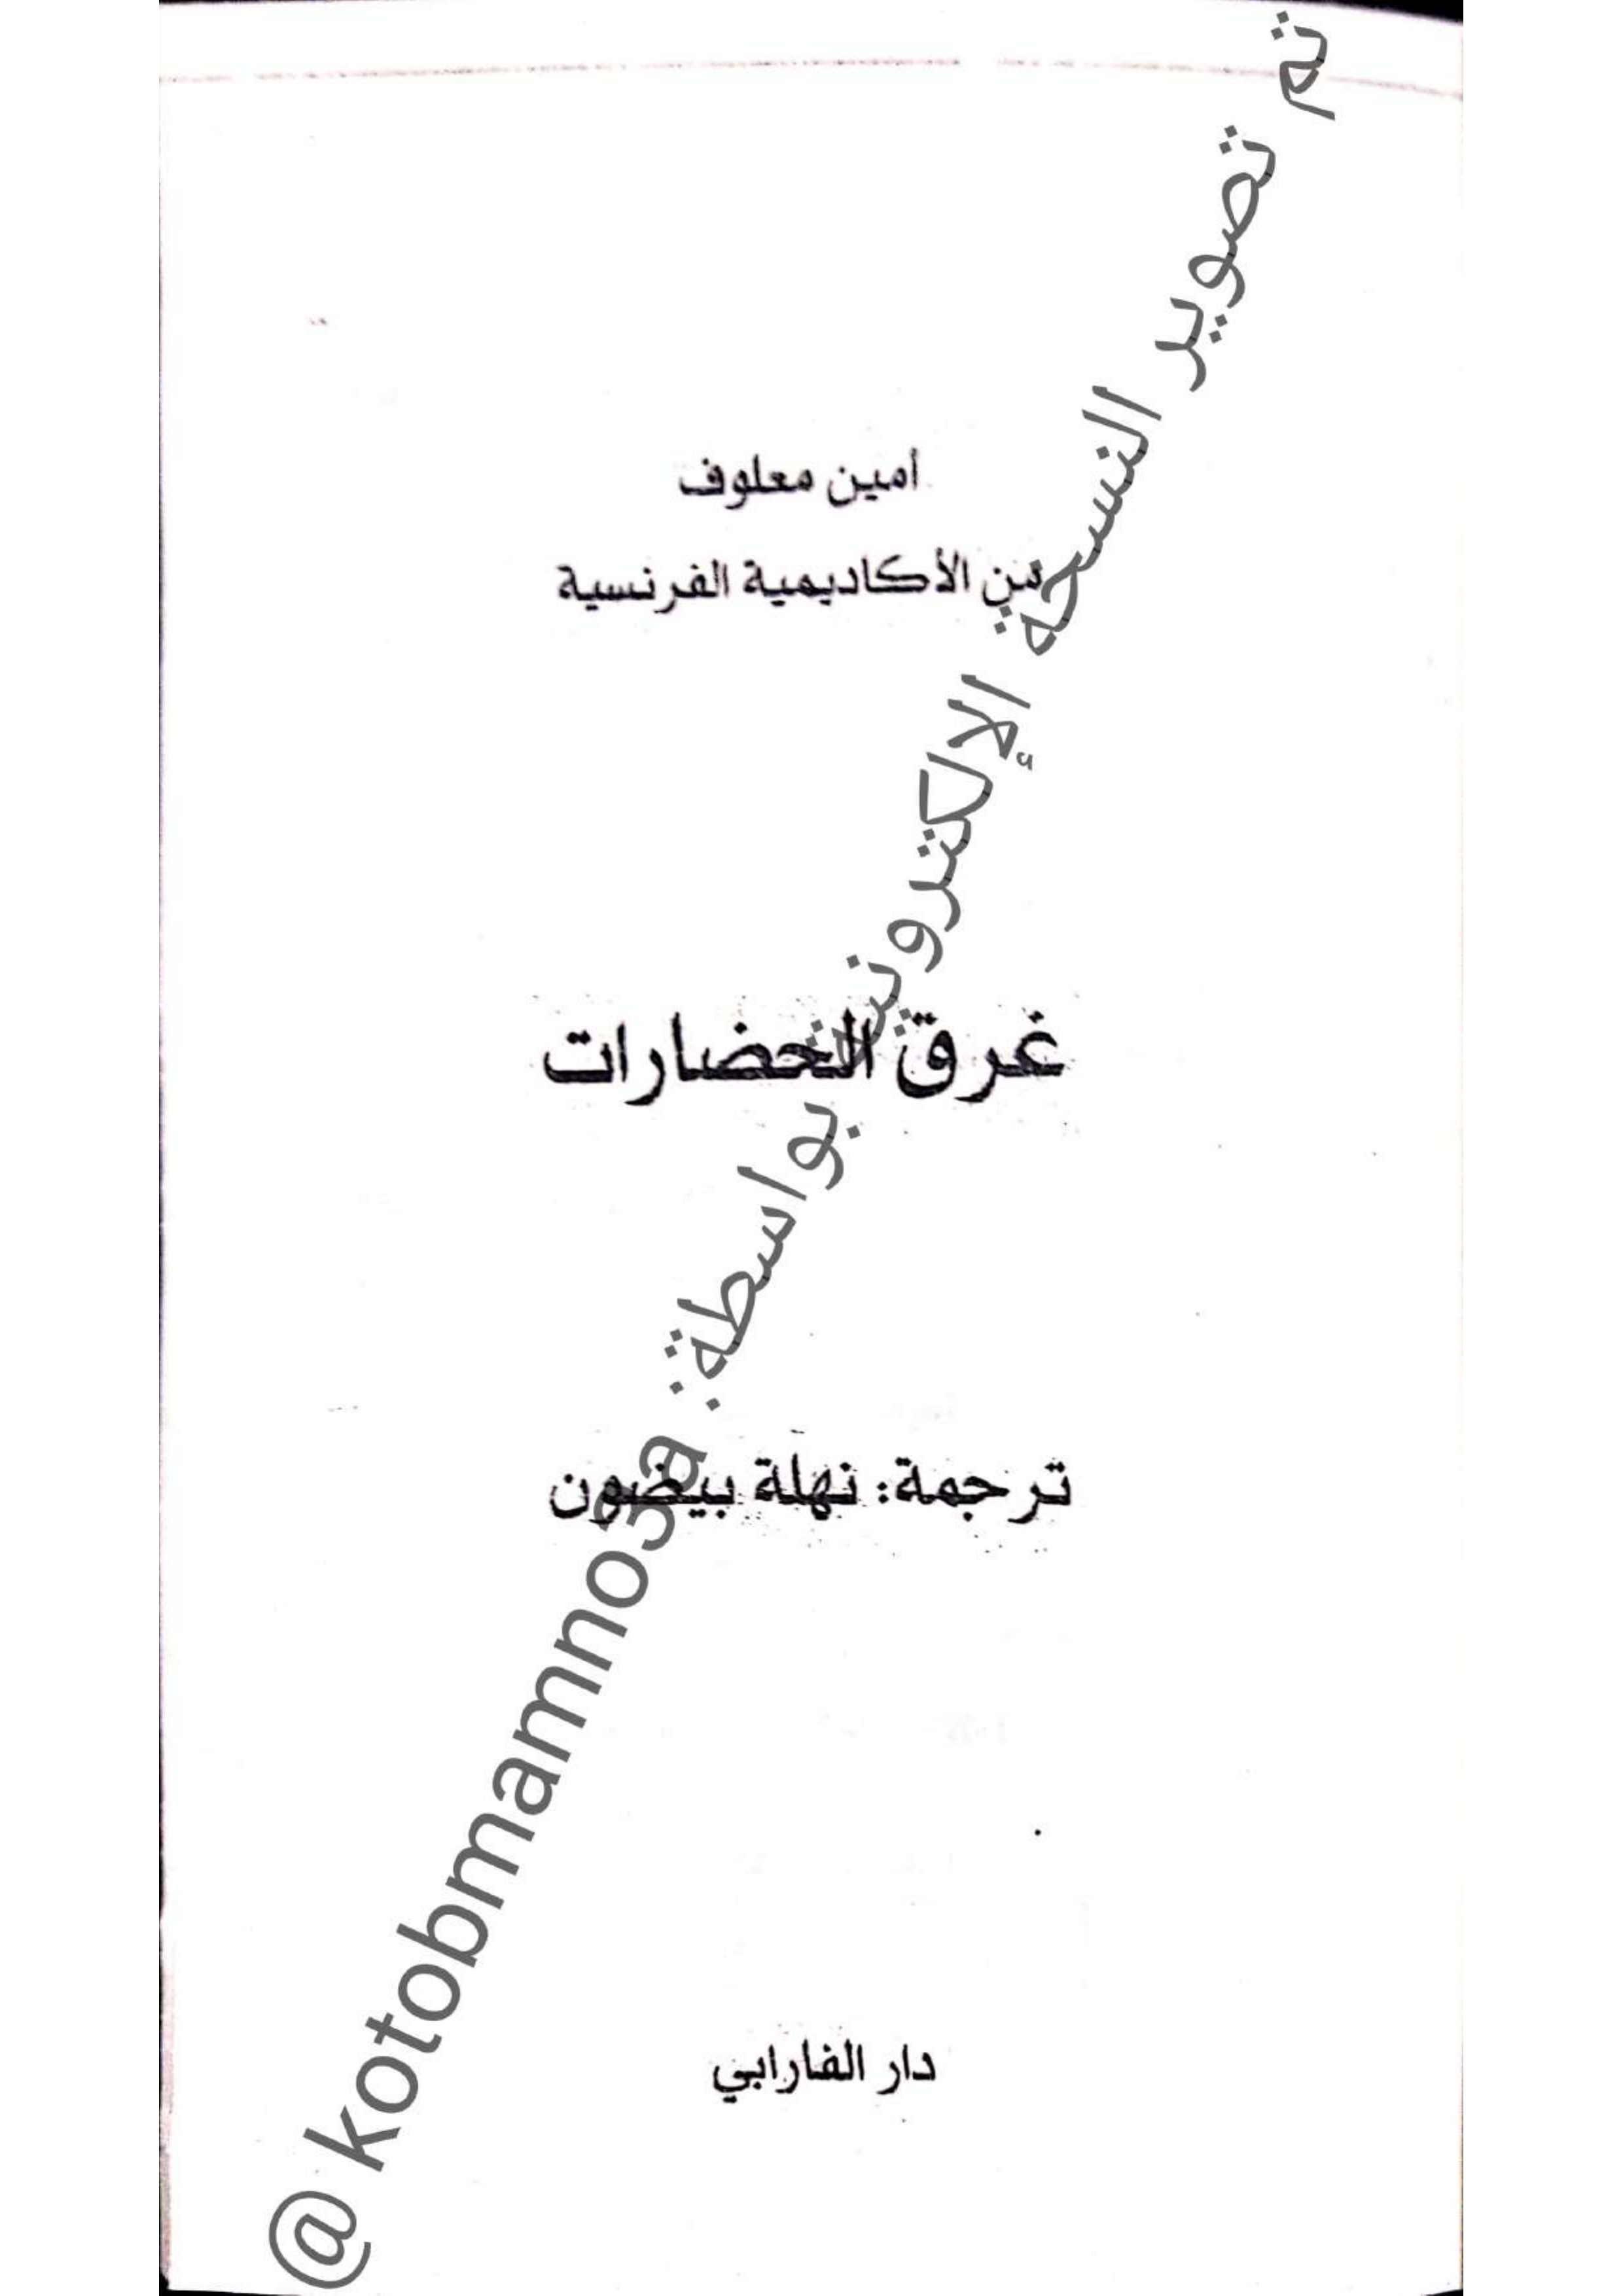 أمين معلوف
من الأكاديمية الفرنسية
غرق الحضارات
ترجمة: نهلة بيضون
دار الفارابي
تم تصوير النسخة الإلكترونية بواسطة:
@kotobmamno3a